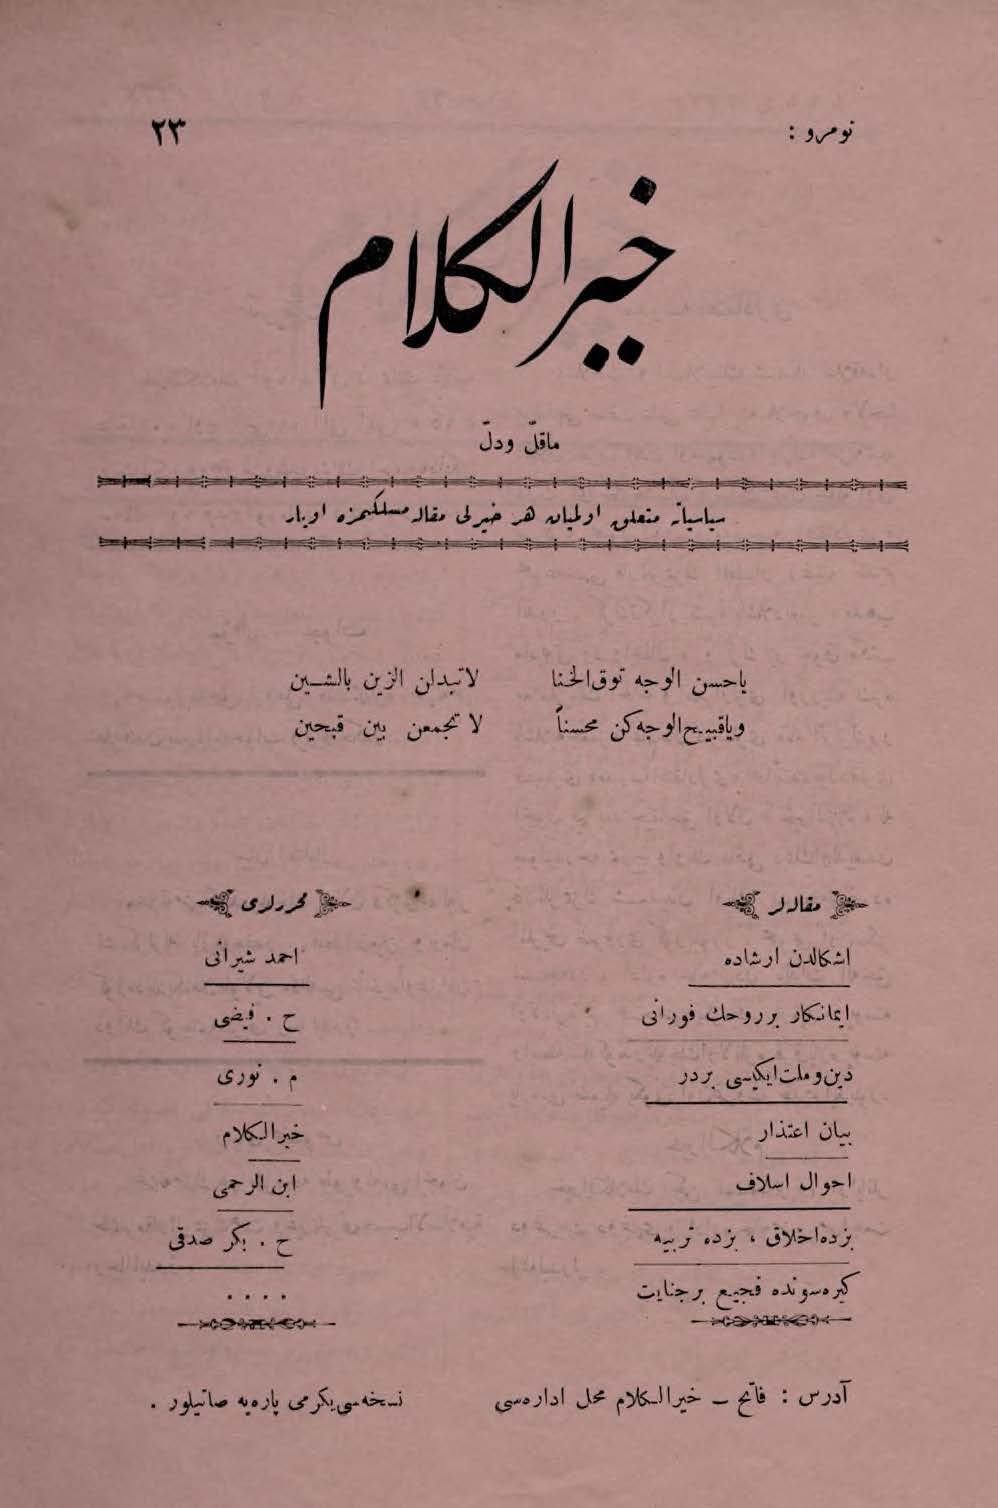 نومرو : ٢٣
خير الكلام
ماقلّ ودلّ
سياسياته متعلق اولميان هر خيرلى مقاله مسلكمزه اويار
ياحسن الوجه توق الخنا لاتبدلن الزين بالشين
وياقبيح الوجه كن محسناً لا تجمعن بين قبحين
مقاله لر محررلرى
اشكالدن ارشاده احمد شيرانى
ايمانكار بر روحك فورانى ح . فيضى
دين وملت ايكيسى بردر م . نورى
بيان اعتذار خير الكلام
احوال اسلاف ابن الرحمى
بزده اخلاق ، بزده تربيه ح . بكر صدقى
كيره سونده فجيع بر جنايت ....
آدرس : فاتح – خير الكلام محل اداره‌سى نسخه‌سى يكرمى پاره‌يه صاتيلور .